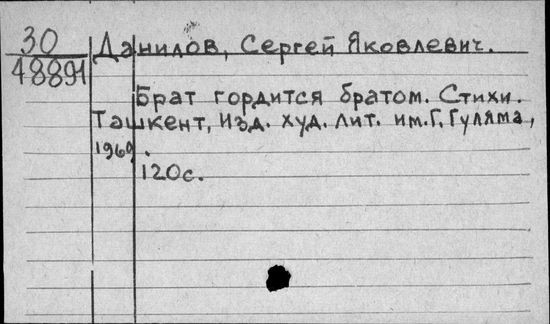 30
48891
Данилов, Сергей Яковлевич.
Брат гордится братом. Стихи.
Ташкент, Изд. худ. лит. им. Г. Гуляма,
1969.
120с.